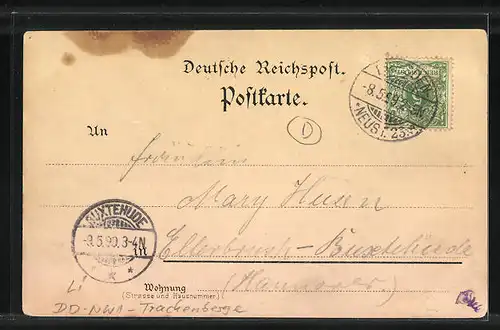 Deutsche Reichspost.
Postkarte.
-8.5.99.3-
*NEUST. 23
D
An
Fräulein
Mary
Ellerbruch-Buxtehude
BUXTEHUDE
-9.5.99.3-4N
Wohnung
(Strasse und Hausnummer)
(Hannover)
Li
DD-NW1-Trachenberge